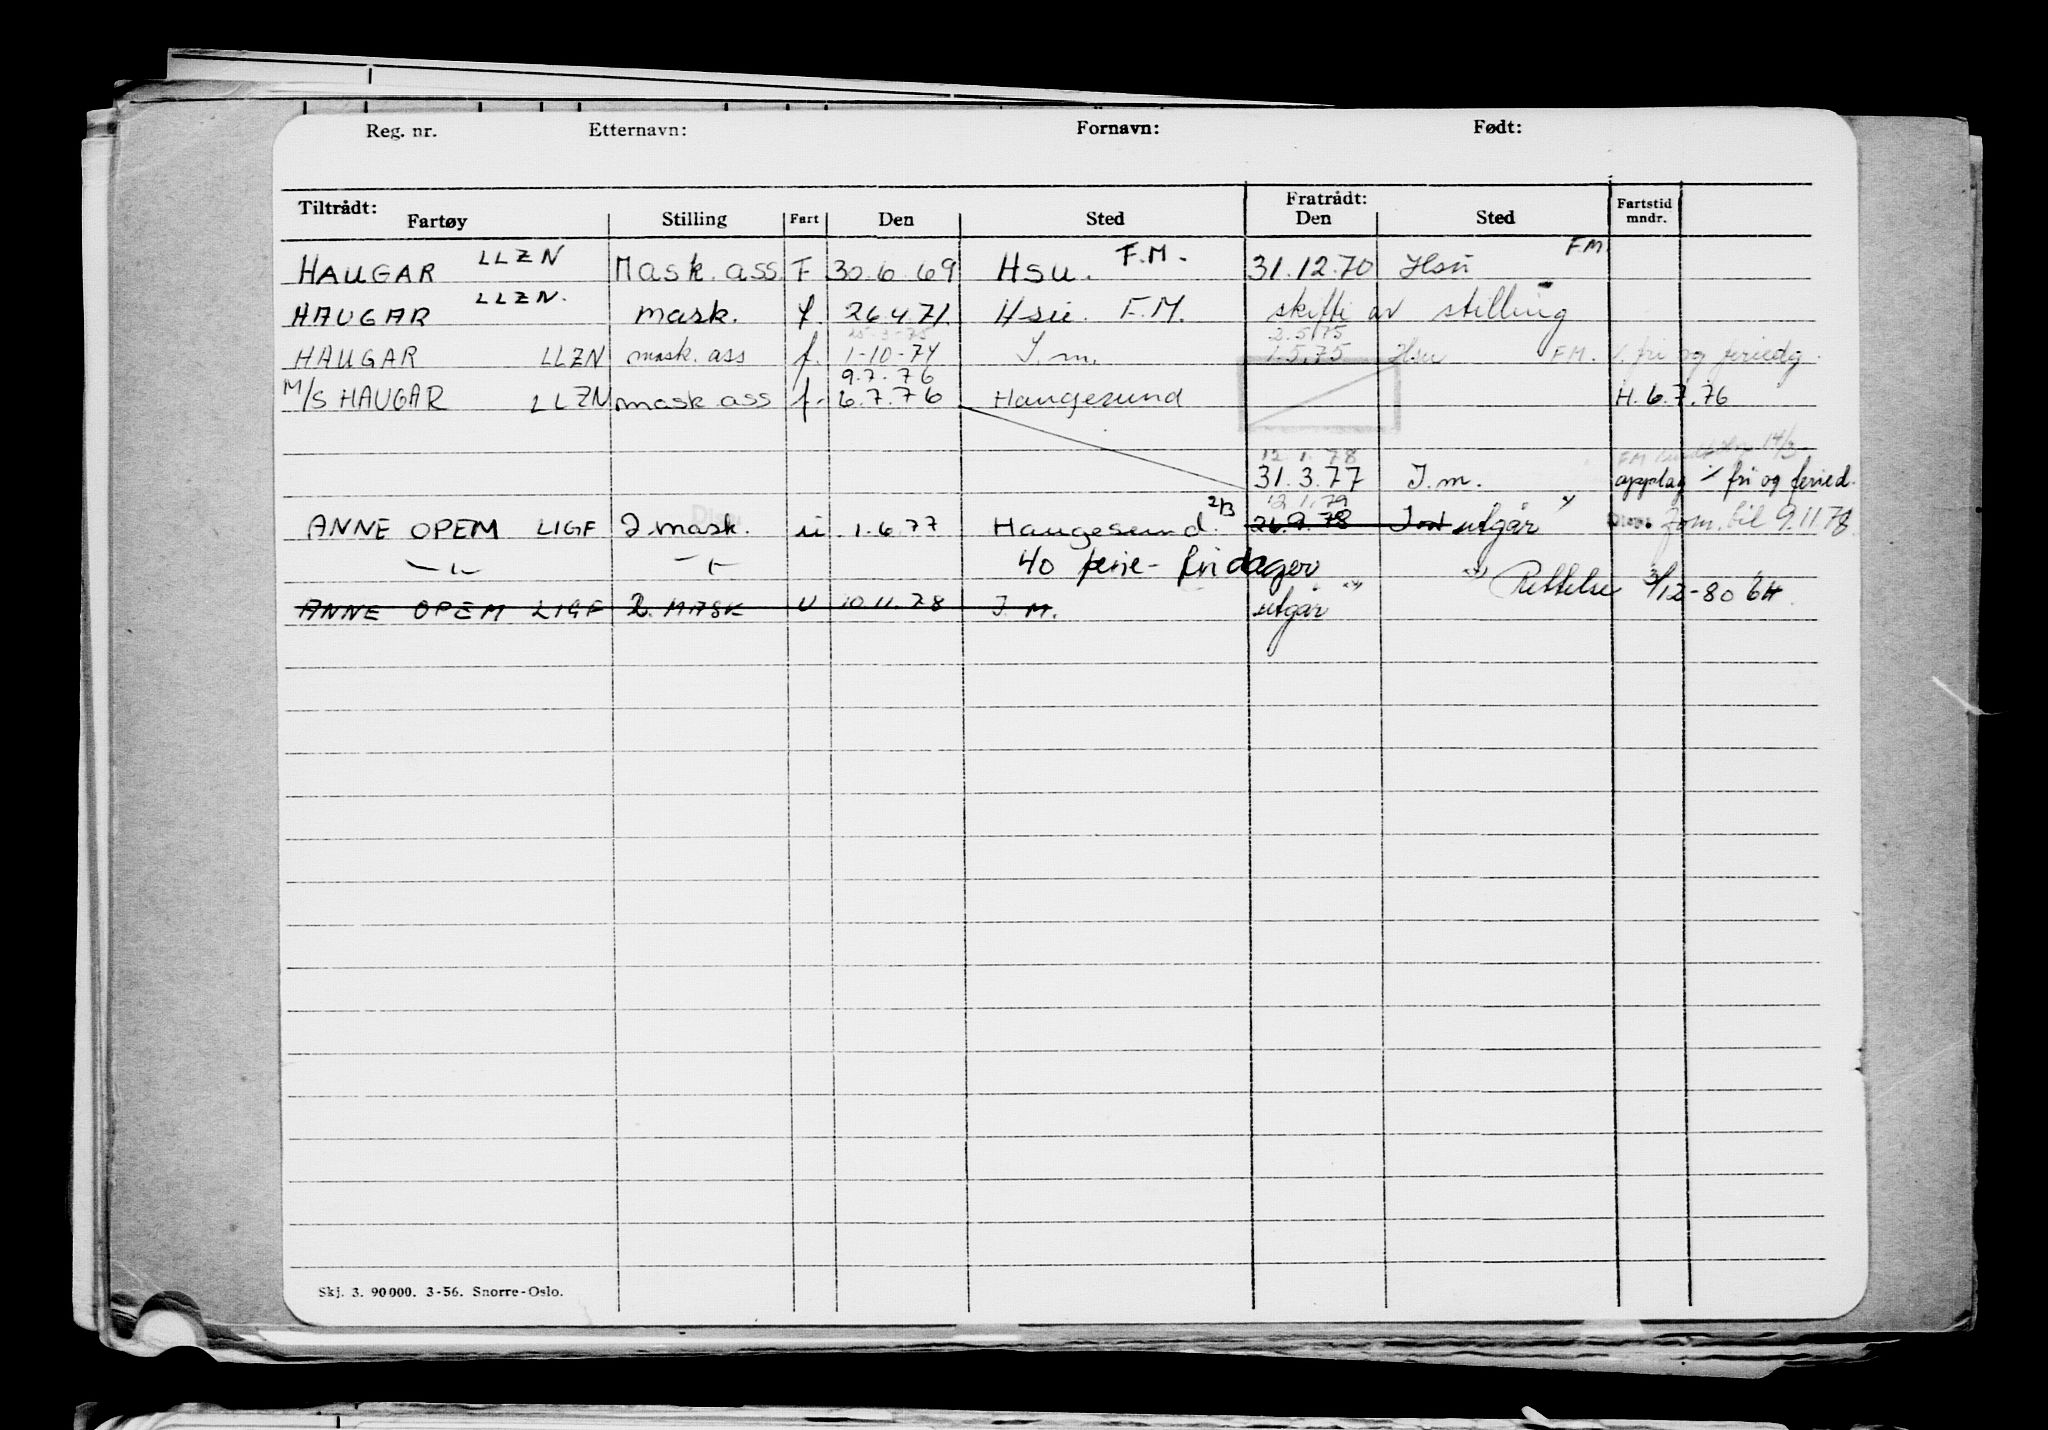 Reg. nr. Etternavn: Fornavn: Født:
Tiltrådt: Fratrådt:
Fartøy Stilling Fart Den Sted Den Sted Fartstid mndr.
HAUGAR LLZN Mask. ass. F 30.6.69 Hsu. F.M. 31.12.70 Hsu FM
HAUGAR LLZN. mask. f. 26.4.71. Hsu. F.M. skifte av stilling
25.3.75 2.5.75
HAUGAR LLZN mask. ass f. 1-10-74 I.m. 1.5.75 Hsu FM. % fri og feriedg.
9.7.76
M/S HAUGAR LLZN mask ass f. 6.7.76 Haugesund H. 6.7.76
12.1.78 FM 14/3
31.3.77 I.m. opptag % fri og feried.
12.1.79
ANNE OPEM LIGF 2 mask. u 1.6.77 Haugesund. 2/3 26.9.78 I.m utgår x) fom. til 9.11.78
—"— —"— 40 ferie- fridager
xx) Rettelse 3/12-80 GH.
ANNE OPEM LIGF 2. MASK U 10.11.78 I M. utgår xx)
Skj. 3. 90000. 3-56. Snorre-Oslo.